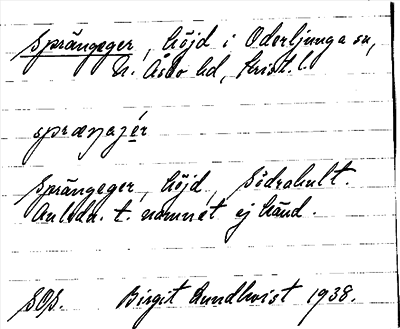 Sprängeger, höjd i Oderljunga sn,
N. Åsbo hd, Krist. l.
spræŋajér
Sprängeger, höjd, Södrahult.
Anledn. t. namnet ej känd.
SOP. Birgit Lundkvist 1938.